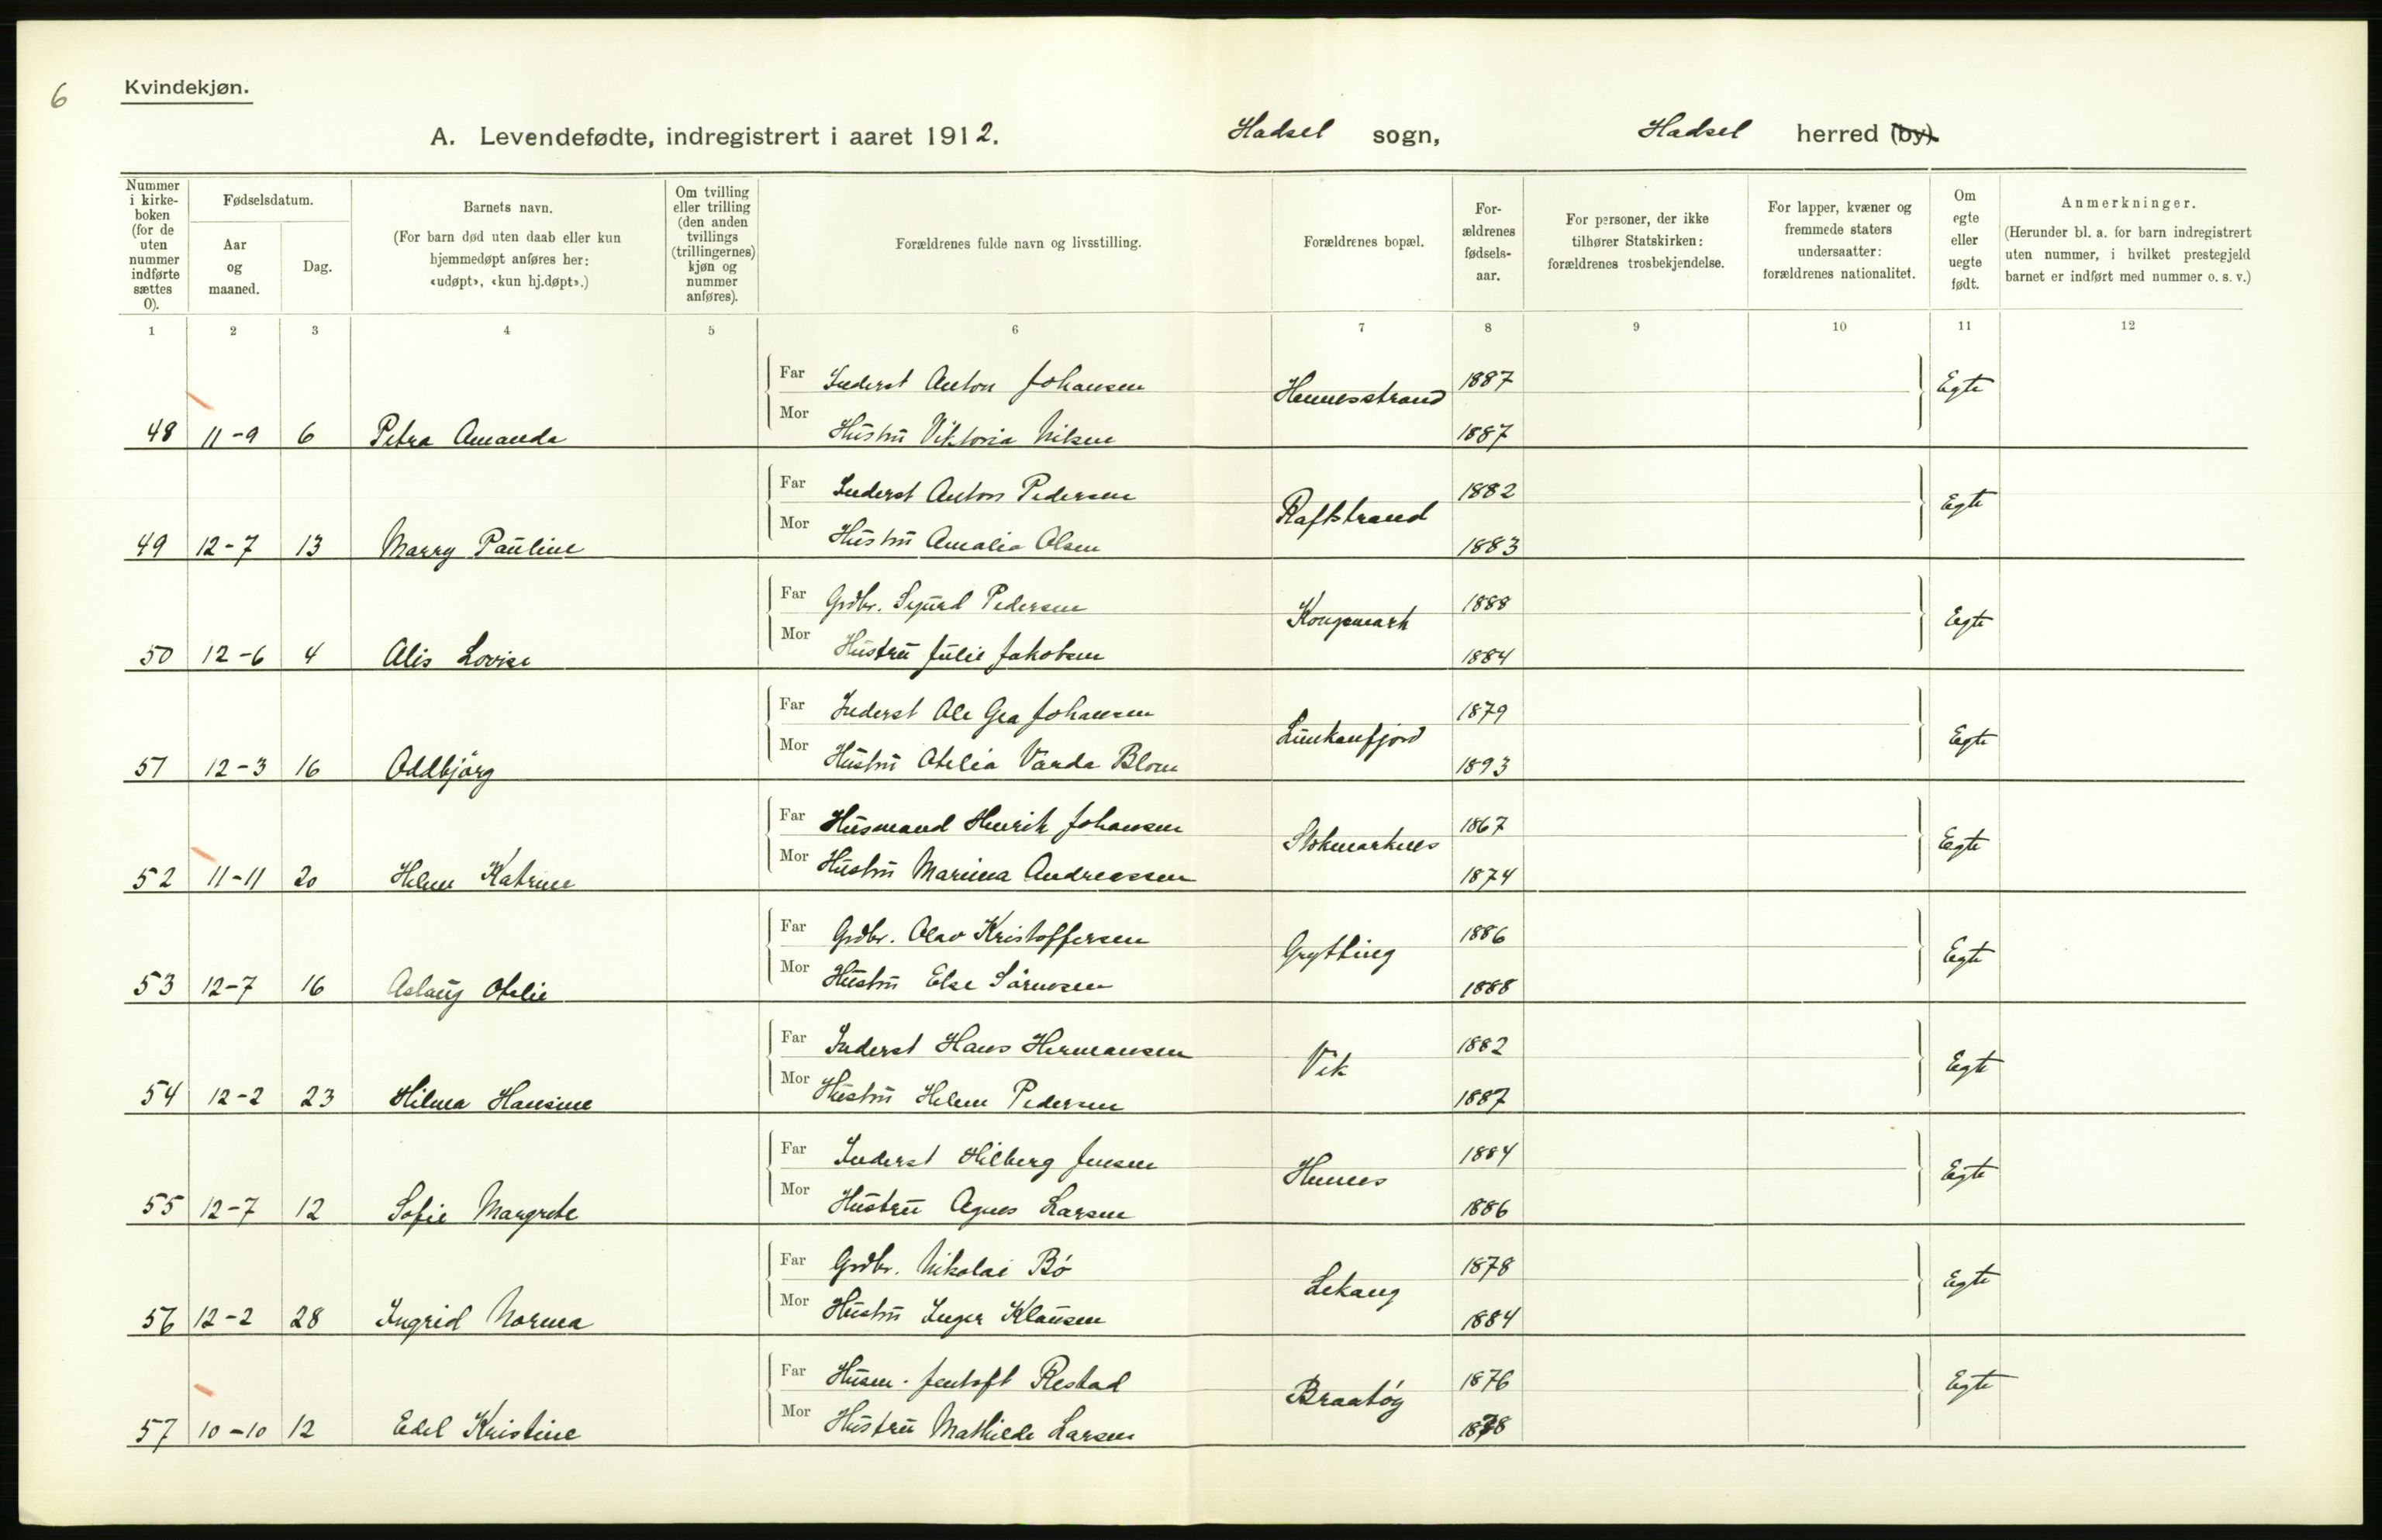 6
Kvindekjøn.
A. Levendefødte, indregistrert i aaret 1912. Hadsel sogn, Hadsel herred (by).
Nummer i kirke-boken (for de uten nummer indførte sættes 0).
Fødselsdatum.
Aar og maaned.
Dag.
Barnets navn.
(For barn død uten daab eller kun hjemmedøpt anføres her: «udøpt», «kun hj.døpt».)
Om tvilling eller trilling (den anden tvillings (trillingernes) kjøn og nummer anføres).
Forældrenes fulde navn og livsstilling.
Forældrenes bopæl.
For-ældrenes fødsels-aar.
For personer, der ikke tilhører Statskirken: forældrenes trosbekjendelse.
For lapper, kvæner og fremmede staters undersaatter: forældrenes nationalitet.
Om egte eller uegte født.
Anmerkninger.
(Herunder bl. a. for barn indregistrert uten nummer, i hvilket prestegjeld barnet er indført med nummer o. s. v.)
1 2 3 4 5 6 7 8 9 10 11 12
Far Inderst Anton Johansen Hennesstrand 1887 Egte
48 11-9 6 Petra Amanda Mor Hustru Viktoria Nilsen 1887
Far Inderst Anton Pedersen Raftstrand 1882 Egte
49 12-7 13 Marry Pauline Mor Hustru Amalia Olsen 1883
Far Grdbr. Sigurd Pedersen Kongsmark 1888 Egte
50 12-6 4 Alis Lovise Mor Hustru Julie Jakobsen 1884
Far Inderst Ole Gea Johansen Lunkanfjord 1879 Egte
51 12-3 16 Oddbjörg Mor Hustru Otelia Varda Blom 1893
Far Husmand Henrik Johansen Stokmarknes 1867 Egte
52 11-11 20 Helene Katrine Mor Hustru Marina Andreassen 1874
Far Grdbr. Olav Kristoffersen Grytting 1886 Egte
53 12-7 16 Aslaug Otelie Mor Hustru Else Sörensen 1888
Far Inderst Hans Hermansen Vik 1882 Egte
54 12-2 23 Hilma Hansine Mor Hustru Helene Pedersen 1887
Far Inderst Hilberg Jensen Hennes 1884 Egte
55 12-7 12 Sofie Margrete Mor Hustru Agnes Larsen 1886
Far Grdbr. Nikolai Bó Lekang 1878 Egte
56 12-2 28 Ingrid Norma Mor Hustru Inger Klausen 1884
Far Husm. Jentoft Restad Braatóy 1876 Egte
57 10-10 12 Edel Kristine Mor Hustru Mathilde Larsen 1878